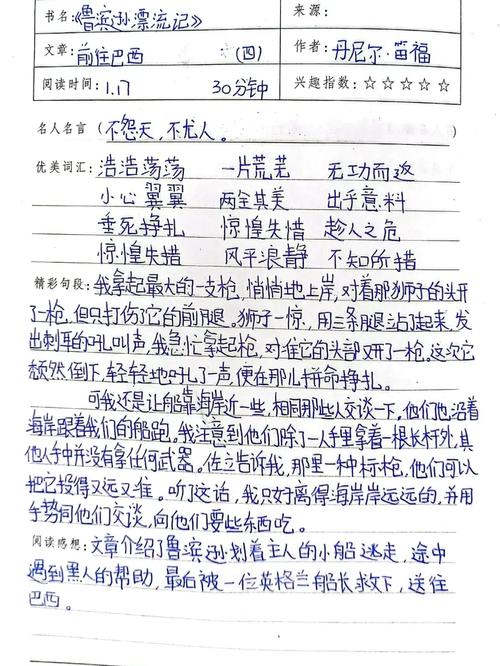 书名:《鲁滨逊漂流记》 来源:
文章: 前往巴西 (四) 作者: 丹尼尔·笛福
阅读时间: 1.17 30分钟 兴趣指数: ☆☆☆☆☆
名人名言 (不怨天,不尤人。 )
优美词汇: 浩浩荡荡 一片荒芜 无功而返
小心翼翼 两全其美 出乎意料
垂死挣扎 惊惶失措 趁人之危
惊惶失措 风平浪静 不知所措
精彩句段: 我拿起最大的一支枪,悄悄地上岸,对着那狮子的头开
了一枪,但只打伤了它的前腿。狮子一惊,用三条腿站了起来,发
出刺耳的吼叫声,我急忙拿起枪,对准它的头部又开了一枪。这次它
颓然倒下,轻轻地吼了一声,便在那儿拼命挣扎。
可我还是让船靠海岸近一些,相同那些人交谈一下。他们也沿着
海岸跟着我们的船跑。我注意到他们除了一人手里拿着一根长杆外,其
他人手中并没有拿任何武器。佐立告诉我,那里一种标枪,他们可以
把它投得又远又准。听了这话,我只好离得海岸岸远远的,并用
手势同他们交谈,向他们要些东西吃。
阅读感想: 文章介绍了鲁滨逊划着主人的小船逃走,途中
遇到黑人的帮助,最后被一位英格兰船长救下,送往
巴西。